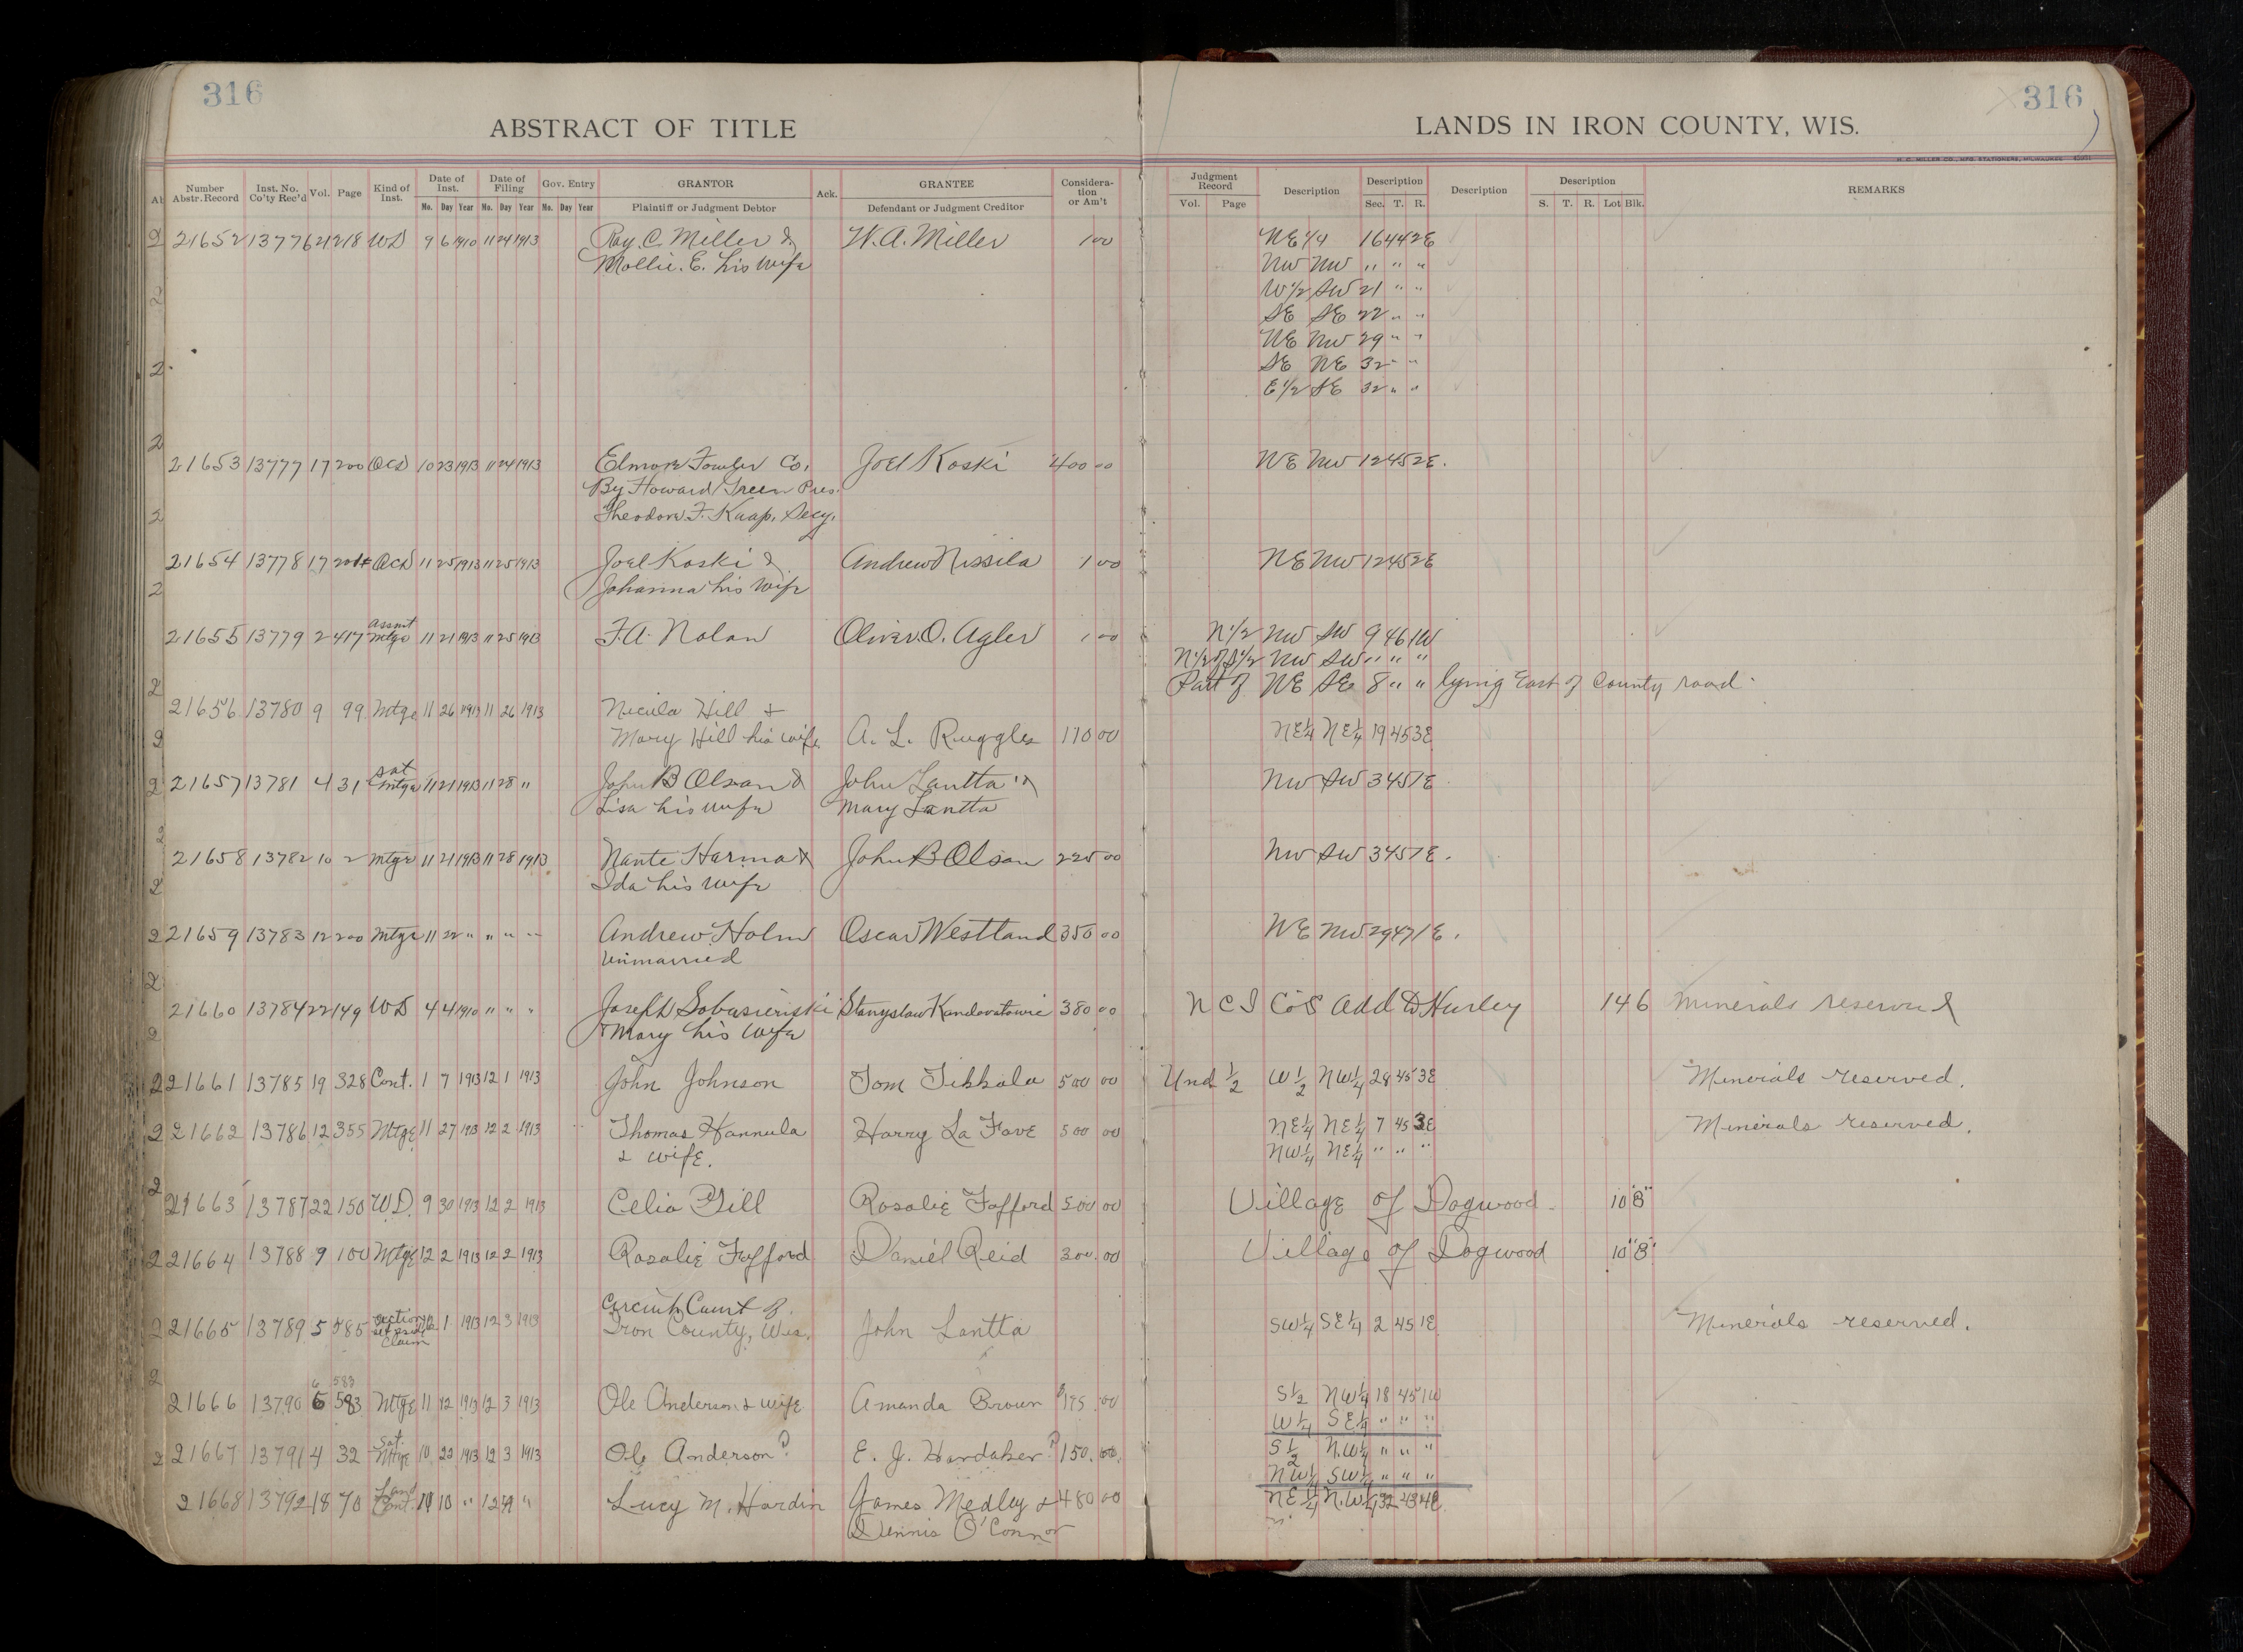 316
316
ABSTRACT OF TITLE
LANDS IN IRON COUNTY, WIS.
H. C. MILLER CO., MFG. STATIONERS, MILWAUKEE
Number Abstr. Record Inst. No. Co'ty Rec'd Vol. Page Kind of Inst. Date of Inst. Date of Filing Gov. Entry GRANTOR Ack. GRANTEE Consideration or Am't Judgment Record Description Description Description Description REMARKS
Mo. Day Year Mo. Day Year Mo. Day Year Plaintiff or Judgment Debtor Defendant or Judgment Creditor Vol. Page Sec. T. R. S. T. R. Lot Blk.
21652 13776 21 218 WD 9 6 1910 11 24 1913 Ray. C. Miller & W. A. Miller 1 00 NE 1/4 16 44 2E
Mollie. E. his wife NW NW " " "
W 1/2 SW 21 " "
SE SE 22 " "
NE NW 29 " "
SE NE 32 " "
E 1/2 SE 32 " "
21653 13777 17 200 QCD 10 23 1913 11 24 1913 Elmore Fowler Co. Joel Koski 400 00 NE NW 12 45 2E.
By Howard Green Pres.
Theodore. F. Knap. Secy.
21654 13778 17 QCD 11 25 1913 11 25 1913 Joel Koski & Andrew Nissila 1 00 NE NW 12 45 2E
Johanna his wife
21655 13779 2 417 assmt mtge 11 21 1913 11 25 1913 F. A. Nolan Oliver. O. Agler 1 00 N 1/2 NW SW 9 46 1W
N 1/2 of S 1/2 NW SW " " "
Part of NE SE 8 " " lying East of County road
21656 13780 9 99 Mtge 11 26 1913 11 26 1913 Nicula Hill +
Mary Hill his wife A. L. Ruggles 110 00 NE 1/4 NE 1/4 19 45 3E
21657 13781 4 31 sat mtge 11 21 1913 11 28 " John B Olson & John Lantta &
NW SW 3 45 1E
Lisa his wife Mary Lantta
21658 13782 10 2 mtge 11 21 1913 11 28 1913 Nante Harma & John B Olson 225 00 NW SW 3 45 1E.
Ida his wife
21659 13783 12 200 mtge 11 22 " " " " Andrew. Holm Oscar Westland 350 00 NE NW 29 47 1E.
unmarried
21660 13784 22 149 WD 4 4 1910 " " " Joseph Stanyslaw 380 00 N C I Co's Add to Hurley 14 6 Minerals reserved
& Mary his wife
21661 13785 19 328 Cont. 1 7 1913 12 1 1913 John Johnson Tom Tikkala 500 00 Und 1/2 W 1/2 NW 1/4 28 45 3E Minerals reserved.
21662 13786 12 355 Mtge 11 27 1913 12 2 1913 Thomas Hannula Harry La Fave 500 00 NE 1/4 NE 1/4 7 45 3E Minerals reserved.
& wife. NW 1/4 NE 1/4 " " "
21663 13787 22 150 W.D. 9 30 1913 12 2 1913 Celia Gill Rosalie Fafford 500 00 Village of Dogwood 10 "B"
21664 13788 9 100 Mtge 12 2 1913 12 2 1913 Rosalie Fafford Daniel Reid 300 00 Village of Dogwood 10 "B"
Circuit Court of
21665 13789 5 585 action set aside Claim 12 1 1913 12 3 1913 Iron County, Wis. John Lantta SW 1/4 SE 1/4 2 45 1E Minerals reserved.
6 583
21666 13790 6 583 Mtge 11 12 1913 12 3 1913 Ole Anderson & wife Amanda Brown 00 S 1/2 NW 1/4 18 45 1W
W 1/4 SE 1/4 " " "
21667 13791 4 32 Sat. Mtge 10 22 1913 12 3 1913 Ole Anderson E. J. Hardaker 150. 00 S 1/2 N.W 1/4 " " "
NW 1/4 SW 1/4 " " "
21668 13792 18 70 Land Cont. 10 " 12 4 " Lucy M. Hardin James Medley & 480 00 NE 1/4 N.W 1/4 32 43 4E
Dennis O'Connor